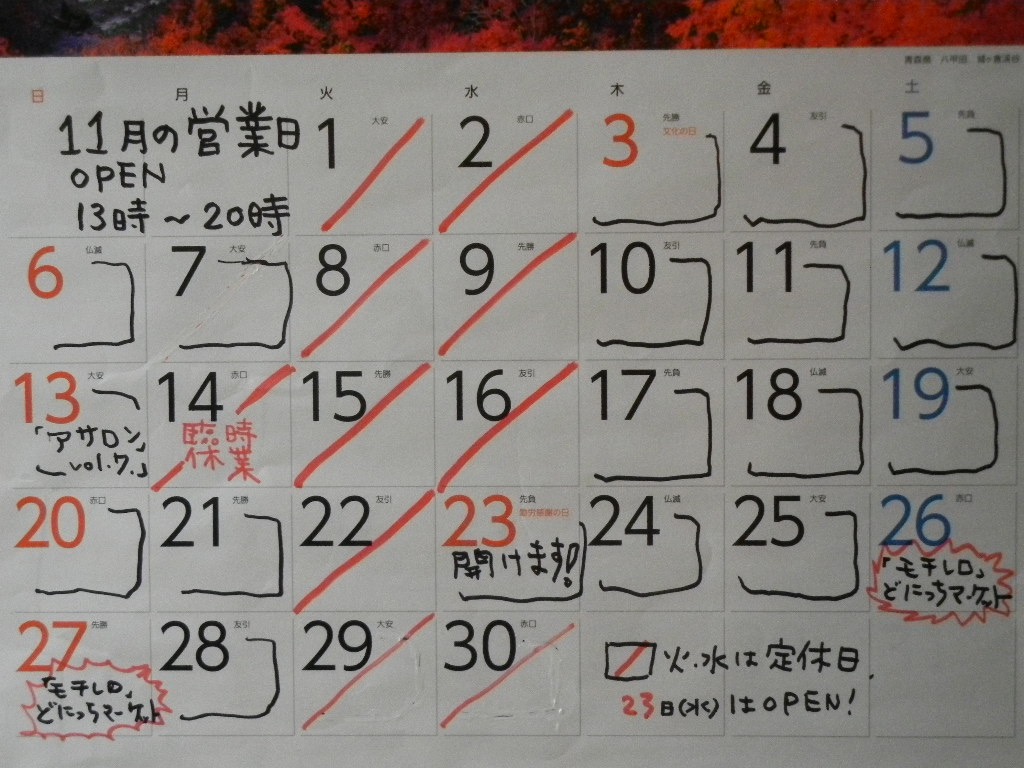 青森県 八甲田 城ヶ倉渓谷
日 月 火 水 木 金 土
11月の営業日
OPEN
13時～20時
1 大安
2 赤口
3 先勝
文化の日
4 友引
5 先負
6 仏滅
7 大安
8 赤口
9 先勝
10 友引
11 先負
12 仏滅
13 大安
「アサロン」
vol.7.
14 赤口
臨時
休業
15 先勝
16 友引
17 先負
18 仏滅
19 大安
20 赤口
21 先勝
22 友引
23 先負
勤労感謝の日
開けます!
24 仏滅
25 大安
26 赤口
「モチレロ」
どにっちマーケット
27 先勝
「モチレロ」
どにっちマーケット
28 友引
29 大安
30 赤口
火.水は定休日.
23日(水)はOPEN!